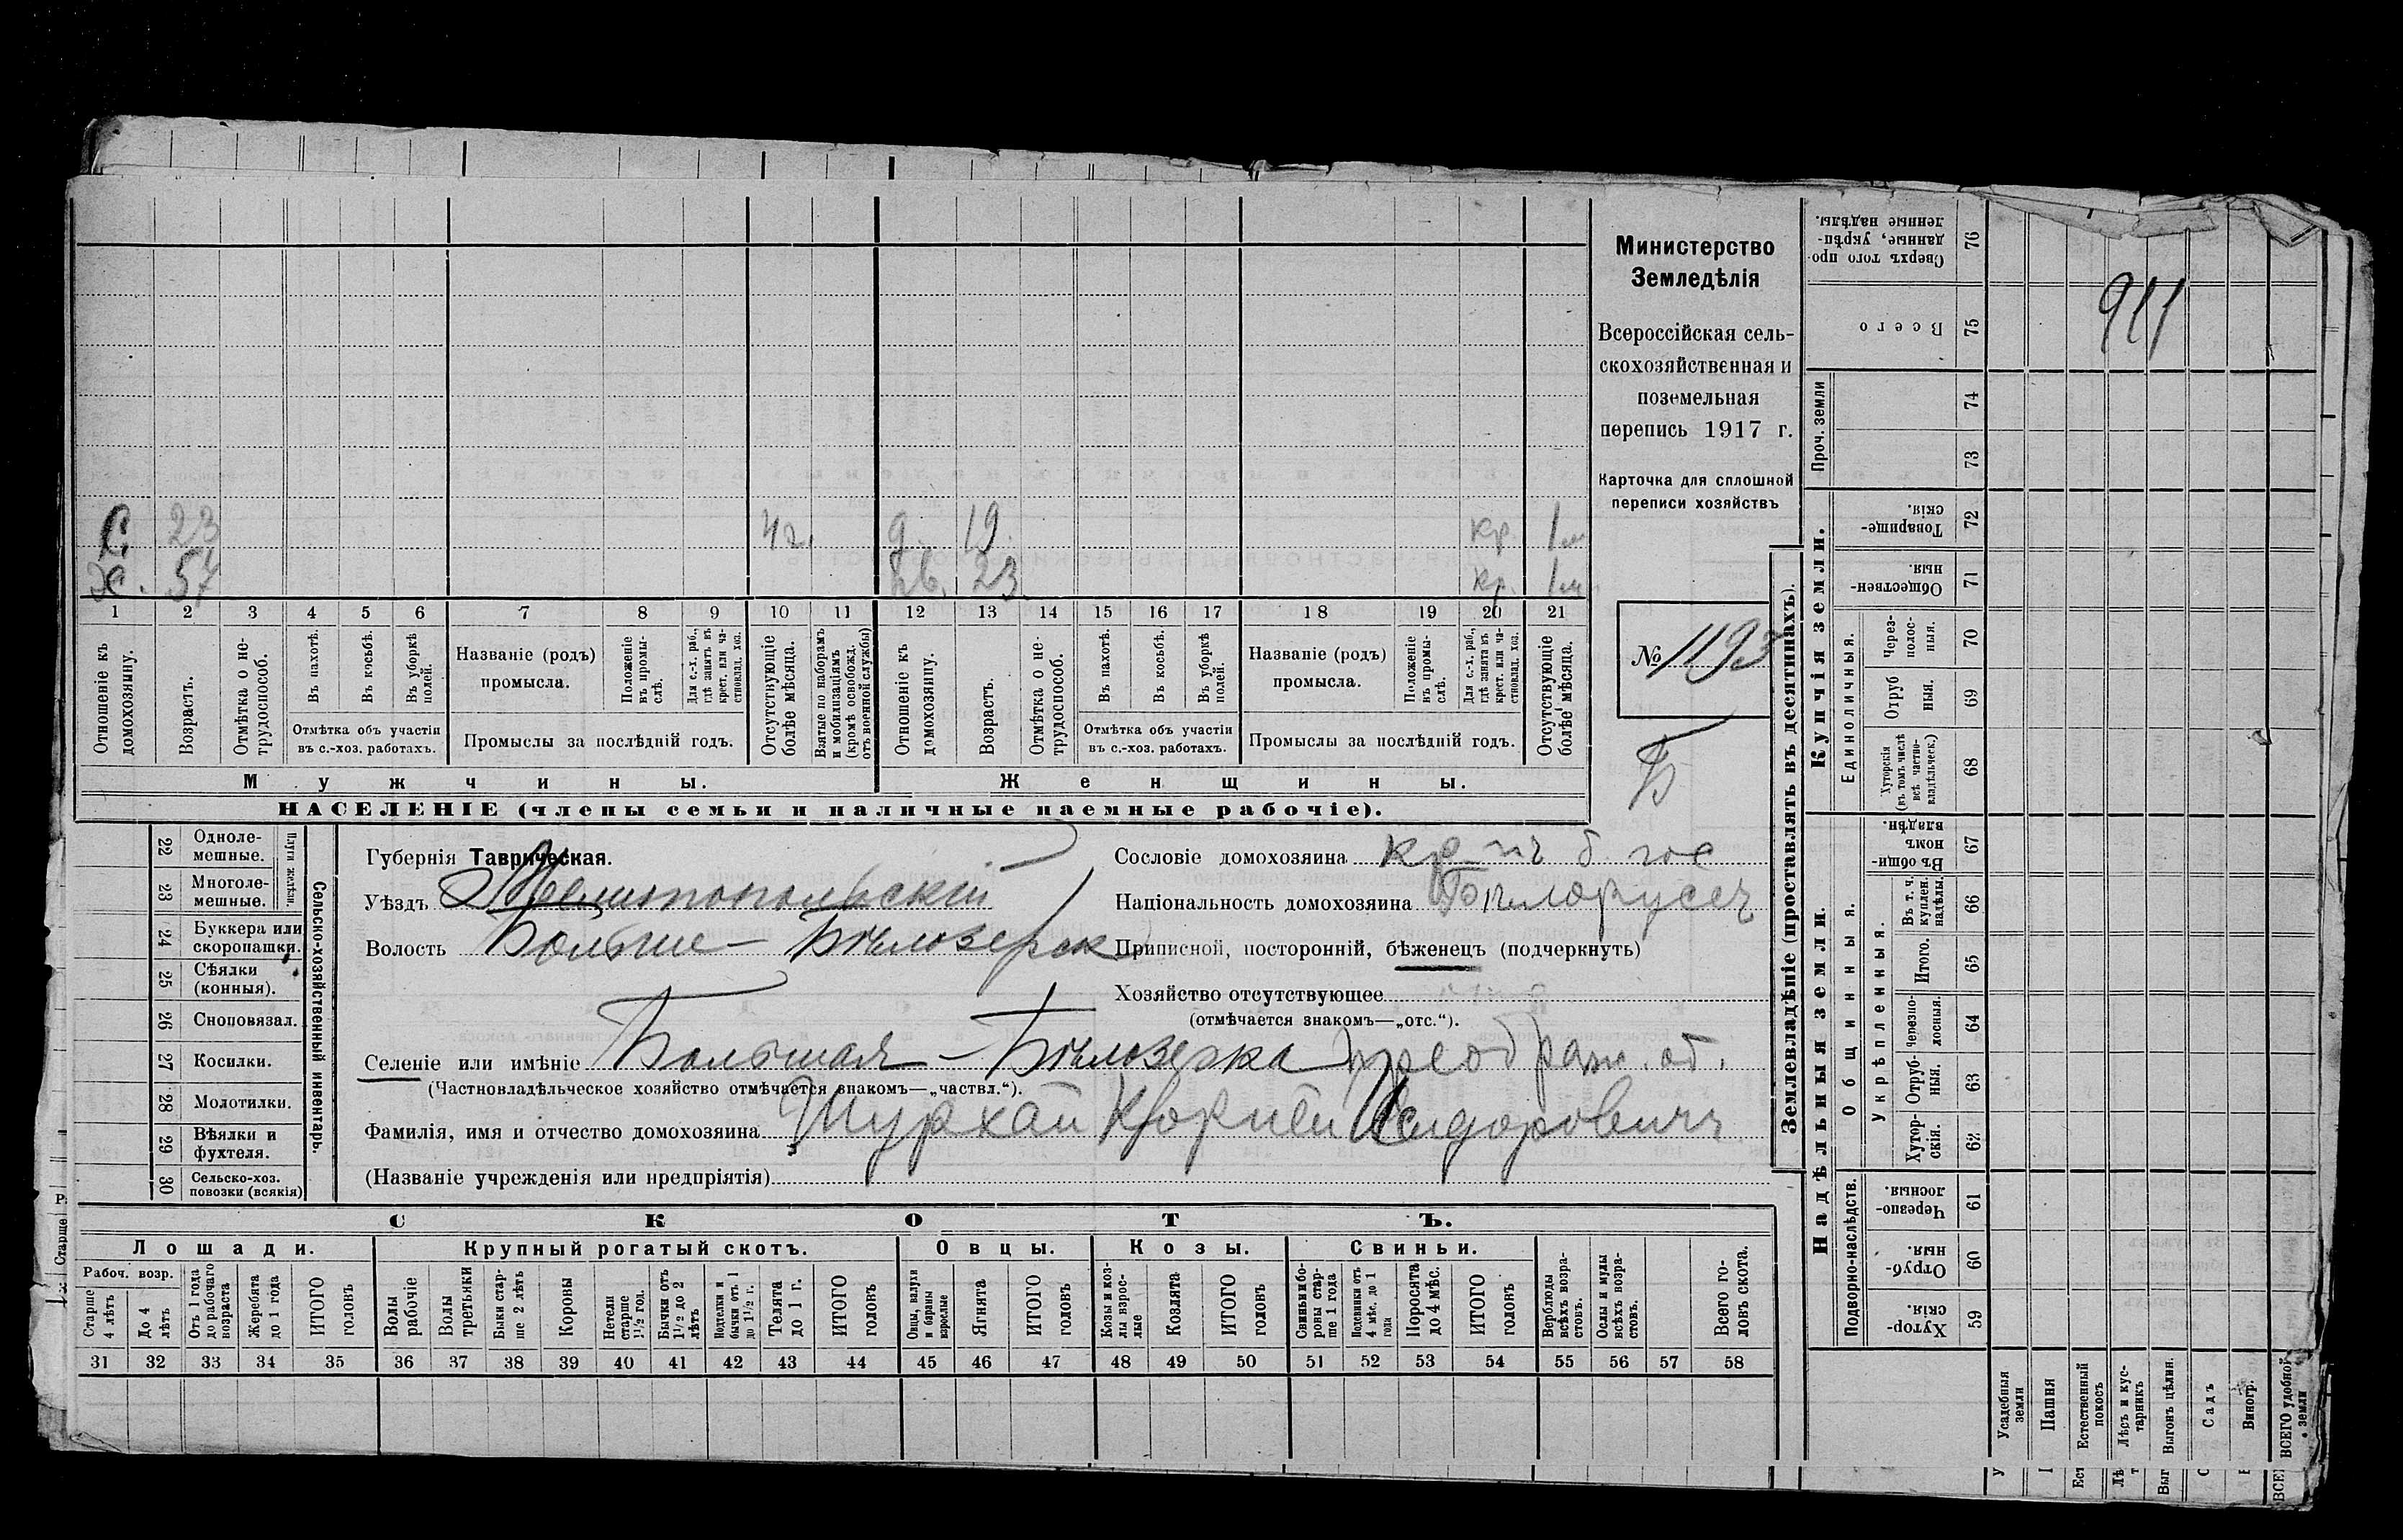 Министерство
Земледѣлія
Всероссійская сель-
скохозяйственная и
поземельная
перепись 1917 г.
Карточка для сплошной
переписи хозяйствъ
№ 1193
Б
С. 23 4 г. д. 19. кр. 1 м
Х. 57 нв. 23 кр. 1 м
1 2 3 4 5 6 7 8 9 10 11 12 13 14 15 16 17 18 19 20 21
Отношеніе къ домохозяину.
Возрастъ.
Отмѣтка о не-трудоспособ.
Въ пахотѣ.
Въ косьбѣ.
Въ уборкѣ полей.
Отмѣтка объ участіи въ с.-хоз. работахъ.
Названіе (родъ) промысла.
Положеніе въ промы-слѣ.
Для с.-х. раб., гдѣ занятъ въ крест. или ча-стновлад. хоз.
Промыслы за послѣдній годъ.
Отсутствующіе болѣе мѣсяца.
Взятые по наборамъ и мобилизаціямъ (кромѣ освобожд. отъ военной службы)
Отношеніе къ домохозяину.
Возрастъ.
Отмѣтка о не-трудоспособ.
Въ пахотѣ.
Въ косьбѣ.
Въ уборкѣ полей.
Отмѣтка объ участіи въ с.-хоз. работахъ.
Названіе (родъ) промысла.
Положеніе въ промы-слѣ.
Для с.-х. раб., гдѣ занята въ крест. или ча-стновлад. хоз.
Промыслы за послѣдній годъ.
Отсутствующіе болѣе мѣсяца.
Мужчины.
Женщины.
НАСЕЛЕНІЕ (члены семьи и наличные наемные рабочіе).
22 Одноле-мешные.
23 Многоле-мешные.
Плуги желѣзн.
24 Буккера или скоропашки.
25 Сѣялки (конныя).
26 Сноповязал.
27 Косилки.
28 Молотилки.
29 Вѣялки и фухтеля.
30 Сельско-хоз. повозки (всякія)
Сельско-хозяйственный инвентарь.
Губернія Таврическая.
Уѣздъ Мелитопольскій
Волость Больше-Бѣлозерск
Сословіе домохозяина кр-нъ б. гос
Національность домохозяина Бѣлорусъ
Приписной, посторонній, бѣженецъ (подчеркнуть)
Хозяйство отсутствующее
(отмѣчается знакомъ—„отс.“).
Селеніе или имѣніе Большая-Бѣлозерка преображ. об.
(Частновладѣльческое хозяйство отмѣчается знакомъ—„частвл.“).
Фамилія, имя и отчество домохозяина Шурхай Корнѣй Исидоровичъ
(Названіе учрежденія или предпріятія)
СКОТЪ.
Лошади. Крупный рогатый скотъ. Овцы. Козы. Свиньи.
Рабоч. возр.
Старше 4 лѣтъ
До 4 лѣтъ
Отъ 1 года до рабочаго возраста
Жеребята до 1 года
ИТОГО головъ
Волы рабочіе
Волы третьяки
Быки стар-ше 2 лѣтъ
Коровы
Нетели старше 1½ год.
Бычки отъ 1½ до 2 лѣтъ
Подтелки и бычки отъ 1 до 1½ г.
Телята до 1 г.
ИТОГО головъ
Овцы, валухи и бараны взрослые
Ягнята
ИТОГО головъ
Козы и коз-лы взрос-лые
Козлята
ИТОГО головъ
Свиньи и бо-ровы стар-ше 1 года
Подсвинки отъ 4 мѣс. до 1 года
Поросята до 4 мѣс.
ИТОГО головъ
Верблюды всѣхъ возра-стовъ.
Ослы и мулы всѣхъ возра-стовъ.
Всего го-ловъ скота.
31 32 33 34 35 36 37 38 39 40 41 42 43 44 45 46 47 48 49 50 51 52 53 54 55 56 57 58
Землевладѣніе (проставлять въ десятинахъ).
Купчія земли.
Надѣльныя земли.
76 Сверхъ того про-данные, укрѣп-ленные надѣлы.
75 Всего
Проч. земли
74
73
72 Товарище-скія.
71 Обществен-ныя.
Единоличныя.
70 Через-полос-ныя.
69 Отруб ныя.
68 Хуторскія (въ томъ числѣ всѣ частно-владѣльческ.)
Общинныя.
67 Въ общин-номъ владѣн.
Укрѣпленныя.
66 Въ т. ч. куплен. надѣлы.
65 Итого.
64 Черезпо-лосныя.
63 Отруб-ныя.
62 Хутор-скія.
Подворно-наслѣдств.
61 Черезпо-лосныя.
60 Отруб-ныя.
59 Хутор-скія.
Усадебныя земли
Пашня
Естественный покосъ
Лѣсъ и кус-тарникъ
Выгонъ цѣлин.
Садъ
Виногр.
ВСЕГО удобной земли